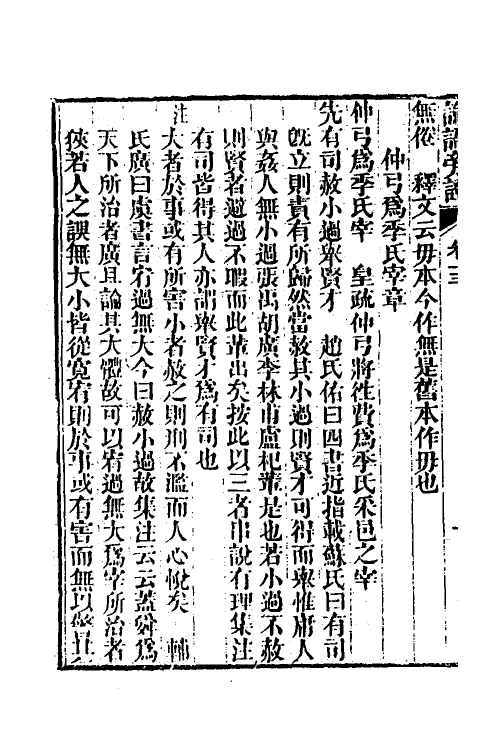 論語旁證 卷十三
無倦 釋文云毋本今作無是舊本作毋也
仲弓爲季氏宰章
仲弓爲季氏宰 皇疏仲弓將往費爲季氏采邑之宰
先有司赦小過舉賢才 趙氏佑曰四書近指載蘇氏曰有司
旣立則責有所歸然當赦其小過則賢才可得而舉惟庸人
與姦人無小過張禹胡廣李林甫盧杞輩是也若小過不赦
則賢者避過不暇而此輩出矣按此以三者串說有理集注
有司皆得其人亦謂舉賢才爲有司也
注
大者於事或有所害小者赦之則刑不濫而人心悅矣 輔
氏廣曰虞書言宥過無大今曰赦小過故集注云云蓋舜爲
天下所治者廣且論其大體故可以宥過無大爲宰所治者
狹若人之誤無大小皆從寬宥則於事或有害而無以警